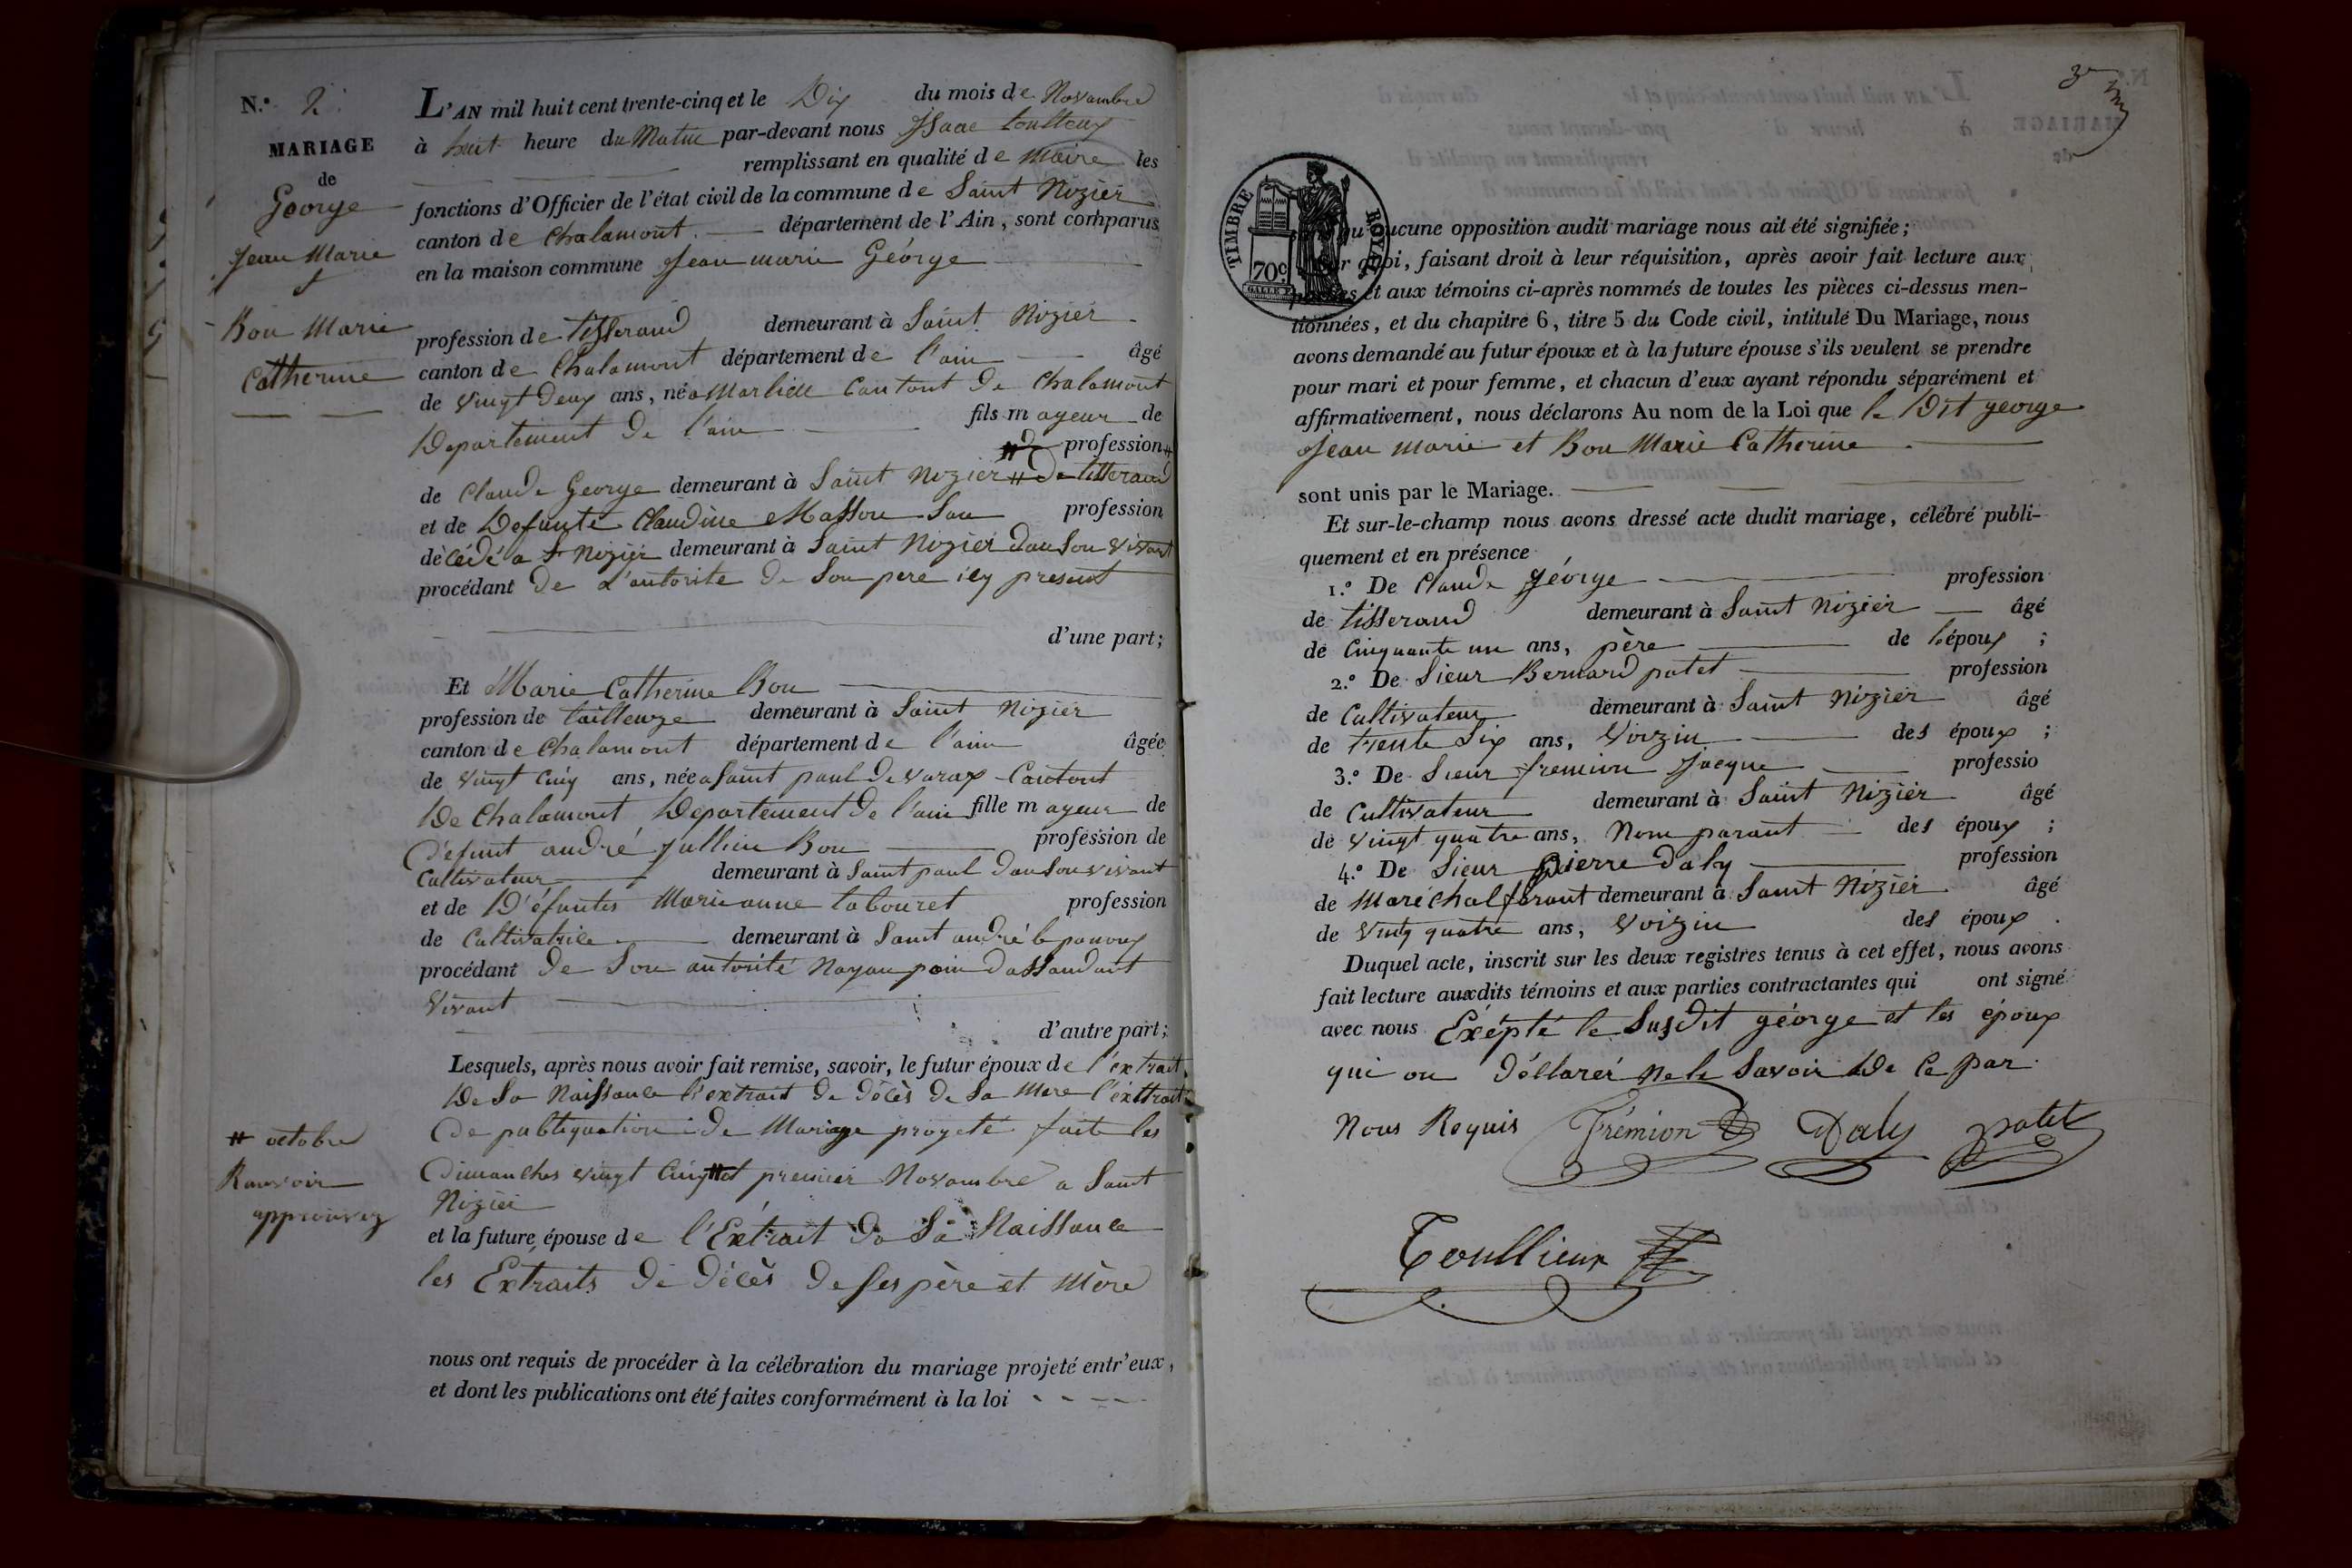 N.° 2
MARIAGE
de
George
Jean Marie
Bon Marie
Catherine
L'AN mil huit cent trente-cinq et le Dix du mois de Novambre
à huit heure du Matin par-devant nous Isaac toullieux
remplissant en qualité de Maire les
fonctions d'Officier de l'état civil de la commune de Saint Nizier
canton de Chalamont département de l'Ain, sont comparus
en la maison commune Jean marie Géorge
profession de tisserand demeurant à Saint Nizier
canton de Chalamont département de l'ain âgé
de vingt Deux ans, né a Marlieu Cantont De Chalamont
Departement De l'ain fils mayeur de
profession #
de Claude George demeurant à Saint Nizier # De titterand
et de Defunte Claudine Masson San profession
décédé a St Nizier demeurant à Saint Nizier Dan Son Vivant
procédant De L'autorite De Son pere icy present
d'une part;
Et Marie Catherine Bon
profession de tailleuze demeurant à Saint Nizier
canton de Chalamont département de l'ain âgée
de vingt Cinq ans, née a Saint paul De varax Cantont
De Chalamont Departement De l'ain fille mayeur de
Défunt andré Jullien Bon profession de
Cultivateur demeurant à Saint paul Dan Son vivant
et de D'éfuntes Marie anne tabouret profession
de Cultivatrice demeurant à Saint andré le panoux
procédant De Son autorité Nayan poin Dassandant
Vivant
d'autre part;
Lesquels, après nous avoir fait remise, savoir, le futur époux de l'éxtrait
De Sa Naissance l'extrait De Décès De Sa Mere l'éxttrait
De publiquation De Mariage progeté fait les
Dimanches vingt Cinq # et premier Novambre a Saint
Nizier
# octobre
Ranvoir
approuvez
et la future épouse de l'Extrait De Sa Naissance
les Extraits De Décès De Ses père et Mère
nous ont requis de procéder à la célébration du mariage projeté entr'eux,
et dont les publications ont été faites conformément à la loi
3
TIMBRE ROYAL
70c
GALLE F.
aucune opposition audit mariage nous ait été signifiée;
quoi, faisant droit à leur réquisition, après avoir fait lecture aux
parties et aux témoins ci-après nommés de toutes les pièces ci-dessus men-
tionnées, et du chapitre 6, titre 5 du Code civil, intitulé Du Mariage, nous
avons demandé au futur époux et à la future épouse s'ils veulent se prendre
pour mari et pour femme, et chacun d'eux ayant répondu séparément et
affirmativement, nous déclarons Au nom de la Loi que le Dit george
Jean marie et Bon Marie Catherine
sont unis par le Mariage.
Et sur-le-champ nous avons dressé acte dudit mariage, célébré publi-
quement et en présence
1.° De Claude Géorge profession
de tisserand demeurant à Saint Nizier âgé
de Cinquante un ans, père de l'époux ;
2.° De Sieur Bernard patet profession
de Cultivateur demeurant à Saint Nizier âgé
de trente Six ans, Voizin des époux ;
3.° De Sieur fremion Jacque professio
de Cultivateur demeurant à Saint Nizier âgé
de vingt quatre ans, Nom parant des époux ;
4.° De Sieur pierre Daly profession
de Maréchal ferant demeurant à Saint Nizier âgé
de Vintg quatre ans, Voizin des époux .
Duquel acte, inscrit sur les deux registres tenus à cet effet, nous avons
fait lecture auxdits témoins et aux parties contractantes qui ont signé
avec nous Exépté le Susdit géorge et les époux
qui on déclarér Ne le Savoir De Ce par
Nous Requis Frémion Daly patet
Toullieux